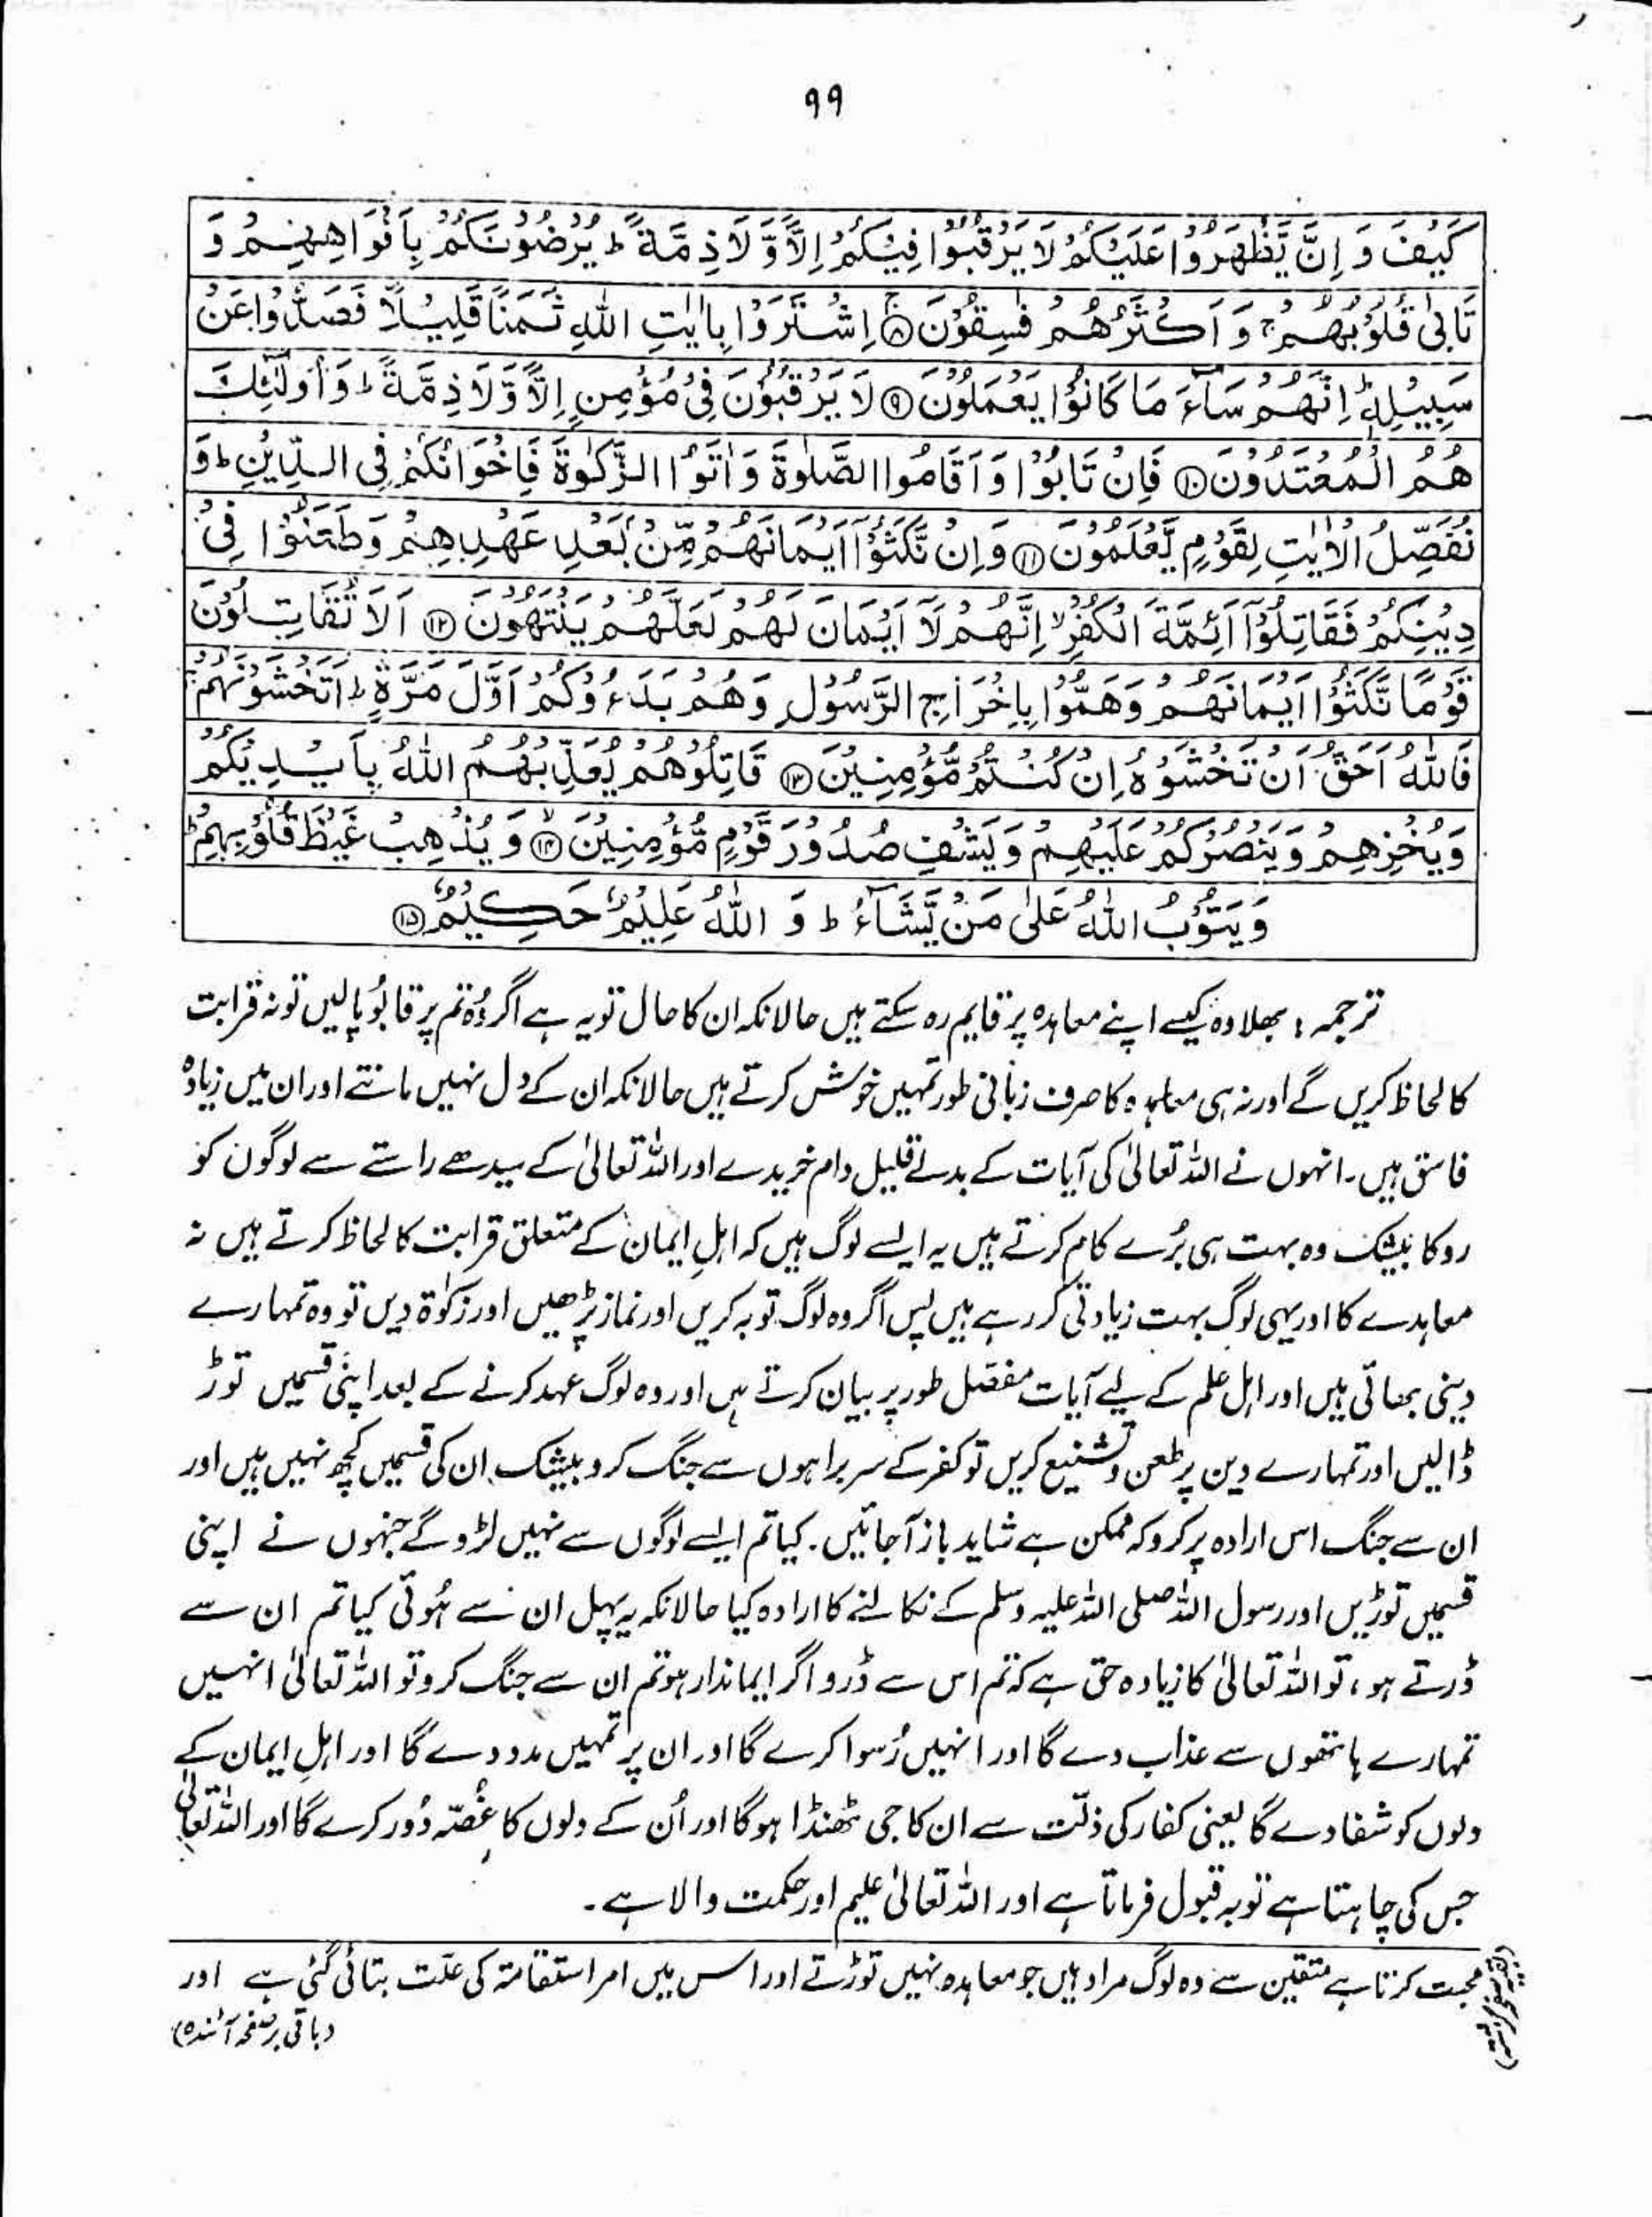 ۹۹
كَيْفَ وَ اِنْ يَّظْهَرُوْا عَلَيْكُمْ لَا يَرْقُبُوْا فِيْكُمْ اِلًّا وَّ لَا ذِمَّةً ؕ يُرْضُوْنَكُمْ بِاَفْوَاهِهِمْ وَ
تَاْبٰى قُلُوْبُهُمْ ۚ وَ اَكْثَرُهُمْ فٰسِقُوْنَ ۝۸ اِشْتَرَوْا بِاٰيٰتِ اللّٰهِ ثَمَنًا قَلِيْلًا فَصَدُّوْا عَنْ
سَبِيْلِهٖ ؕ اِنَّهُمْ سَآءَ مَا كَانُوْا يَعْمَلُوْنَ ۝۹ لَا يَرْقُبُوْنَ فِيْ مُؤْمِنٍ اِلًّا وَّ لَا ذِمَّةً ؕ وَ اُولٰٓئِكَ
هُمُ الْمُعْتَدُوْنَ ۝۱۰ فَاِنْ تَابُوْا وَ اَقَامُوا الصَّلٰوةَ وَ اٰتَوُا الزَّكٰوةَ فَاِخْوَانُكُمْ فِي الدِّيْنِ ؕ وَ
نُفَصِّلُ الْاٰيٰتِ لِقَوْمٍ يَّعْلَمُوْنَ ۝۱۱ وَ اِنْ نَّكَثُوْۤا اَيْمَانَهُمْ مِّنْۢ بَعْدِ عَهْدِهِمْ وَ طَعَنُوْا فِيْ
دِيْنِكُمْ فَقَاتِلُوْۤا اَئِمَّةَ الْكُفْرِ ۙ اِنَّهُمْ لَاۤ اَيْمَانَ لَهُمْ لَعَلَّهُمْ يَنْتَهُوْنَ ۝۱۲ اَلَا تُقَاتِلُوْنَ
قَوْمًا نَّكَثُوْۤا اَيْمَانَهُمْ وَ هَمُّوْا بِاِخْرَاجِ الرَّسُوْلِ وَ هُمْ بَدَءُوْكُمْ اَوَّلَ مَرَّةٍ ؕ اَتَخْشَوْنَهُمْ ۚ
فَاللّٰهُ اَحَقُّ اَنْ تَخْشَوْهُ اِنْ كُنْتُمْ مُّؤْمِنِيْنَ ۝۱۳ قَاتِلُوْهُمْ يُعَذِّبْهُمُ اللّٰهُ بِاَيْدِيْكُمْ
وَ يُخْزِهِمْ وَ يَنْصُرْكُمْ عَلَيْهِمْ وَ يَشْفِ صُدُوْرَ قَوْمٍ مُّؤْمِنِيْنَ ۝۱۴ۙ وَ يُذْهِبْ غَيْظَ قُلُوْبِهِمْ ؕ
وَ يَتُوْبُ اللّٰهُ عَلٰى مَنْ يَّشَآءُ ؕ وَ اللّٰهُ عَلِيْمٌ حَكِيْمٌ ۝۱۵
ترجمہ : بھلا وہ کیسے اپنے معاہدہ پر قایم رہ سکتے ہیں حالانکہ ان کا حال تو یہ ہے اگر وُہ تم پر قابُو پالیں تو نہ قرابت
کا لحاظ کریں گے اور نہ ہی معاہدہ کا صرف زبانی طور تمہیں خوش کرتے ہیں حالانکہ ان کے دل نہیں مانتے اور ان میں زیادہ
فاسق ہیں۔ انہوں نے اللہ تعالیٰ کی آیات کے بدلے قلیل دام خریدے اور اللہ تعالیٰ کے سیدھے راستے سے لوگون کو
روکا بیشک وہ بہت ہی بُرے کام کرتے ہیں یہ ایسے لوگ ہیں کہ اہلِ ایمان کے متعلق قرابت کا لحاظ کرتے ہیں نہ
معاہدے کا اور یہی لوگ بہت زیادتی کر رہے ہیں پس اگر وہ لوگ توبہ کریں اور نماز پڑھیں اور زکوٰۃ دیں تو وہ تمہارے
دینی بھائی ہیں اور اہل علم کے لیے آیات مفصّل طور پر بیان کرتے ہیں اور وہ لوگ عہد کرنے کے بعد اپنی قسمیں توڑ
ڈالیں اور تمہارے دین پر طعن و تشنیع کریں تو کفر کے سربراہوں سے جنگ کرو بیشک ان کی قسمیں کچھ نہیں ہیں اور
ان سے جنگ اس ارادہ پر کرو کہ ممکن ہے شاید باز آجائیں۔ کیا تم ایسے لوگوں سے نہیں لڑو گے جنہوں نے اپنی
قسمیں توڑیں اور رسول اللہ صلی اللہ علیہ وسلم کے نکالنے کا ارادہ کیا حالانکہ یہ پہل ان سے ہُوئی کیا تم ان سے
ڈرتے ہو ، تو اللہ تعالیٰ کا زیادہ حق ہے کہ تم اس سے ڈرو اگر ایماندار ہو تم ان سے جنگ کرو تو اللہ تعالیٰ انہیں
تمہارے ہاتھوں سے عذاب دے گا اور انہیں رُسوا کرے گا اور ان پر تمہیں مدد دے گا اور اہلِ ایمان کے
دلوں کو شفا دے گا یعنی کفار کی ذلّت سے ان کا جی ٹھنڈا ہوگا اور اُن کے دلوں کا غُصّہ دُور کرے گا اور اللہ تعالیٰ
جس کی چاہتا ہے توبہ قبول فرماتا ہے اور اللہ تعالیٰ علیم اور حکمت والا ہے۔
محبت کرتا ہے متقین سے وہ لوگ مراد ہیں جو معاہدہ نہیں توڑتے اور اس میں امر استقامۃ کی علّت بتائی گئی ہے اور
(باقی بر صفحہ آئندہ)